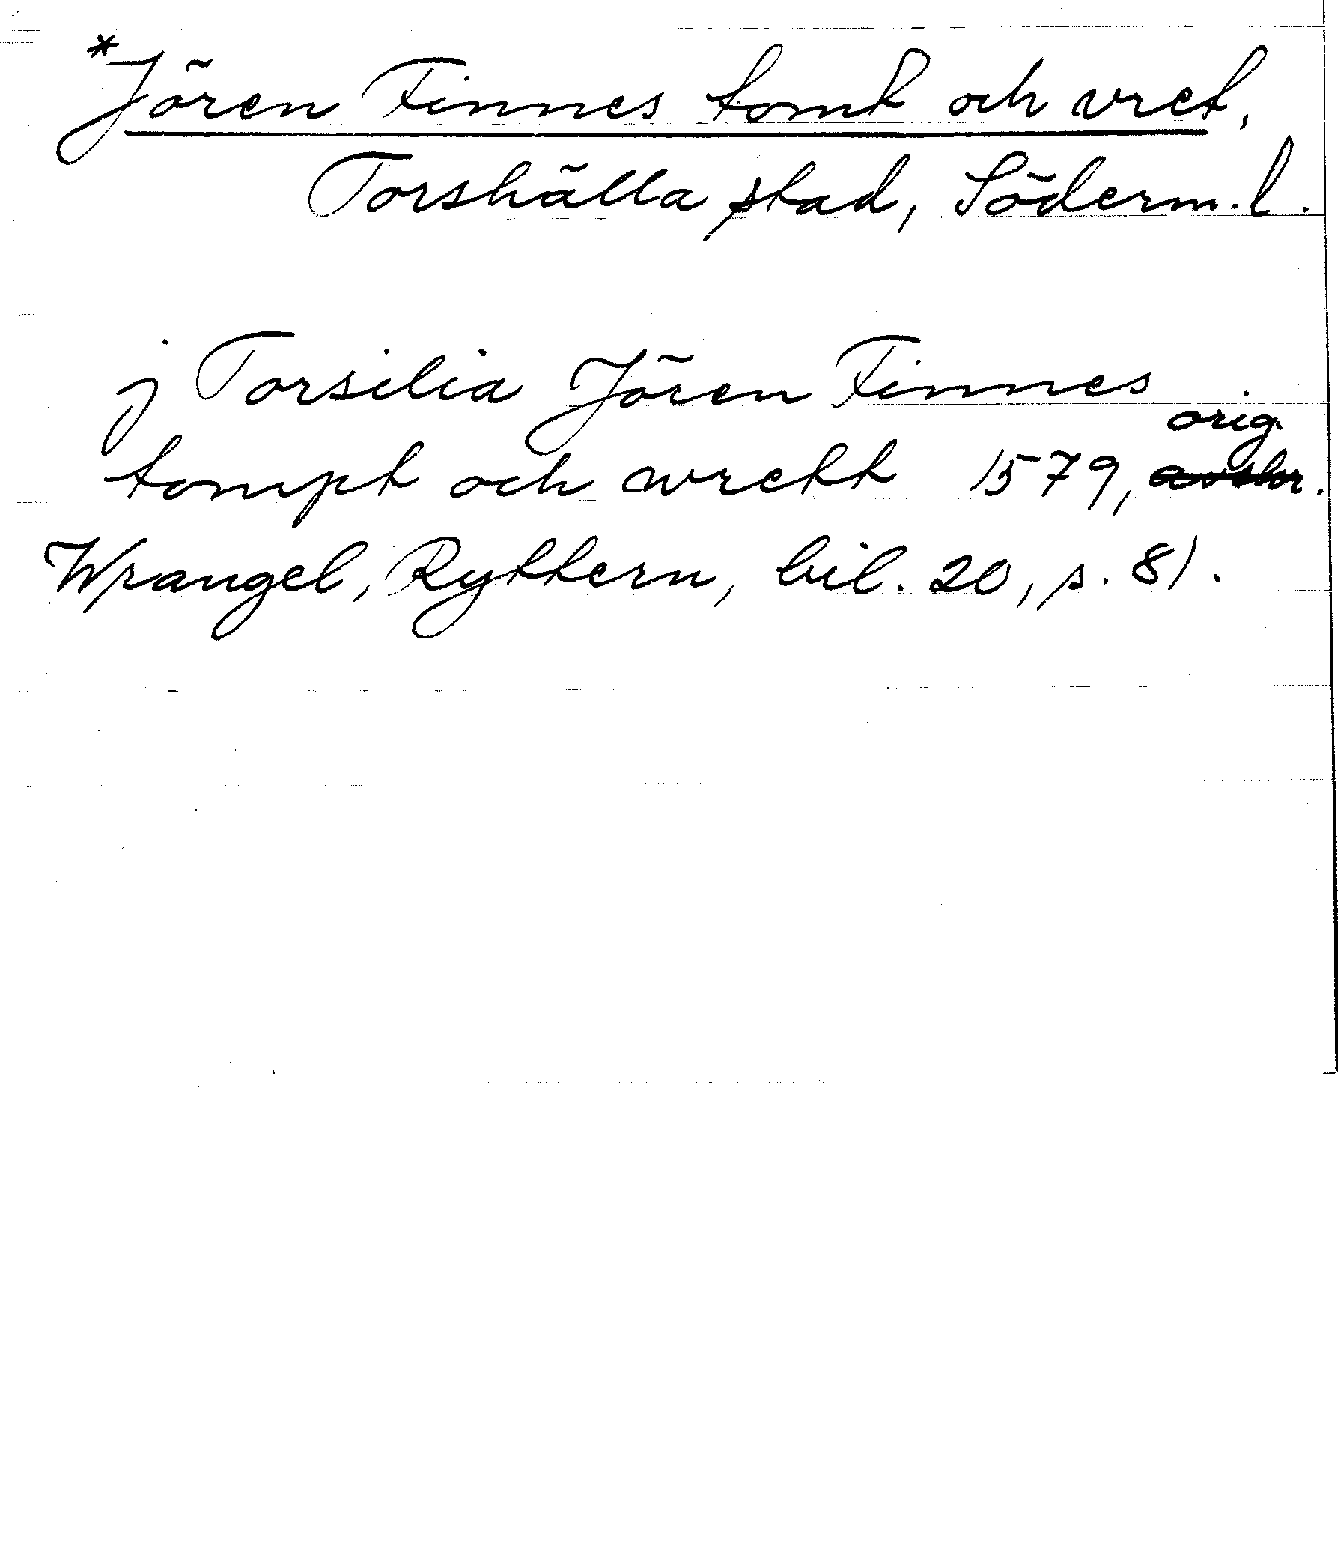 *Jören Finnes tomt och vret,
Torshälla stad, Söderm.l.
j Torsilia Jören Finnes
orig.
tompt och wrett 1579, avskr.
Wrangel, Ryttern, bil. 20, s. 81.